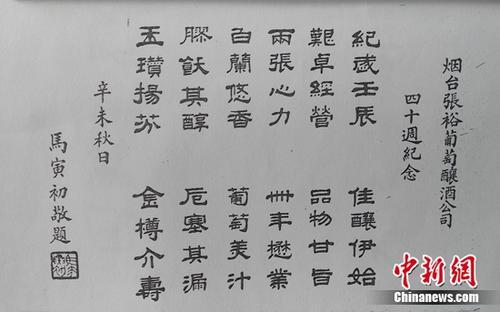 烟台張裕葡萄釀酒公司
四十週紀念
紀歲壬辰 佳釀伊始
艱卓經營 品物甘旨
兩張心力 卌年懋業
白蘭悠香 葡萄美汁
膠飫其醇 卮塞其漏
玉瓚揚芬 金樽介壽
辛未秋日
馬寅初敬題
中新網
Chinanews.com